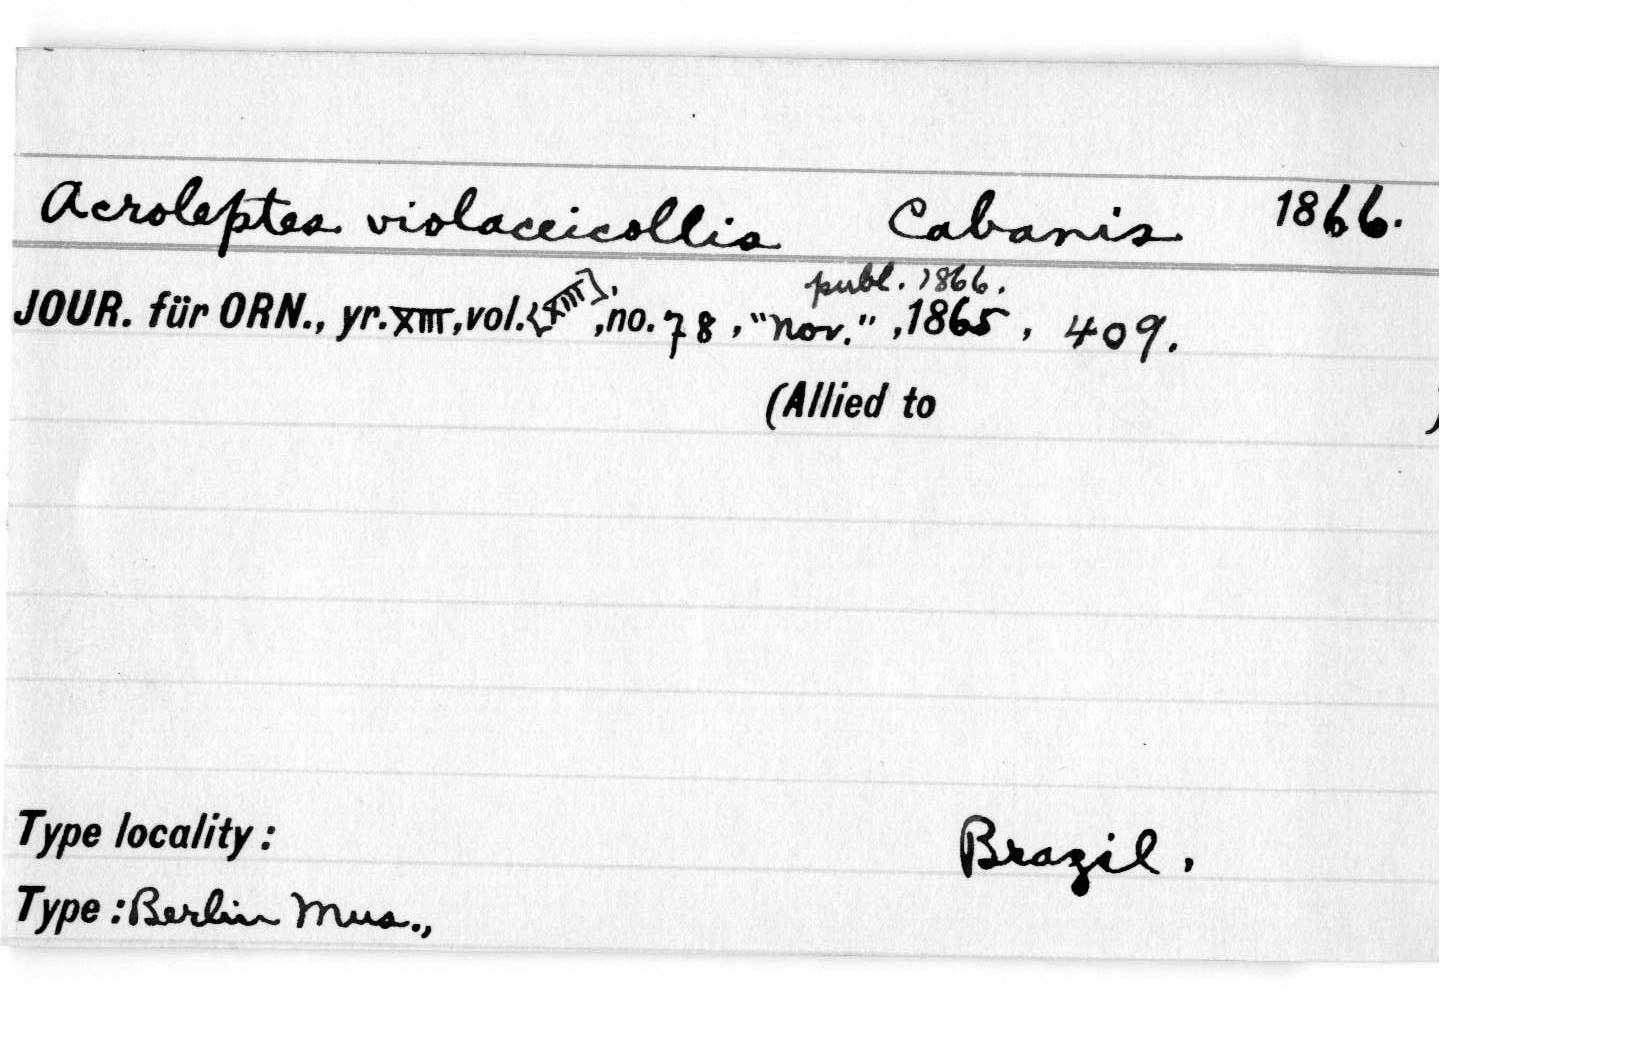 Acroleptes violaceicollis Cabanis 1866.
publ. 1866.
JOUR. für ORN., yr. XIII, vol. [XIII], no. 78, "Nov.", 1865, 409.
(Allied to )
Type locality: Brazil.
Type: Berlin Mus.,